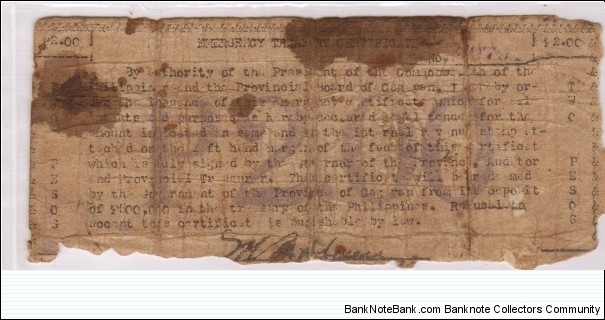 ₱2.00 EMERGENCY TREASURY CERTIFICATE ₱2.00
No.
By authority of the President of the Commonwealth of the
Philippines and the Provincial Board of Cagayan, I hereby or-
issuance of this emergency certificate which for all
intents and purposes is hereby declared legal tender for the
amount indicated in same and in the internal revenue stamp at-
tached on the left hand margin of the face of this certificate
which is duly signed by the Governor of the Province, Auditor
and Provincial Treasurer. This certificate will be redeemed
by the Government of the Province of Cagayan from its deposit
of ₱200,000 in the treasury of the Philippines. Refusal to
accept this certificate is punishable by law.
TWO PESOS
TWO PESOS
BanknoteBank.com Banknote Collectors Community